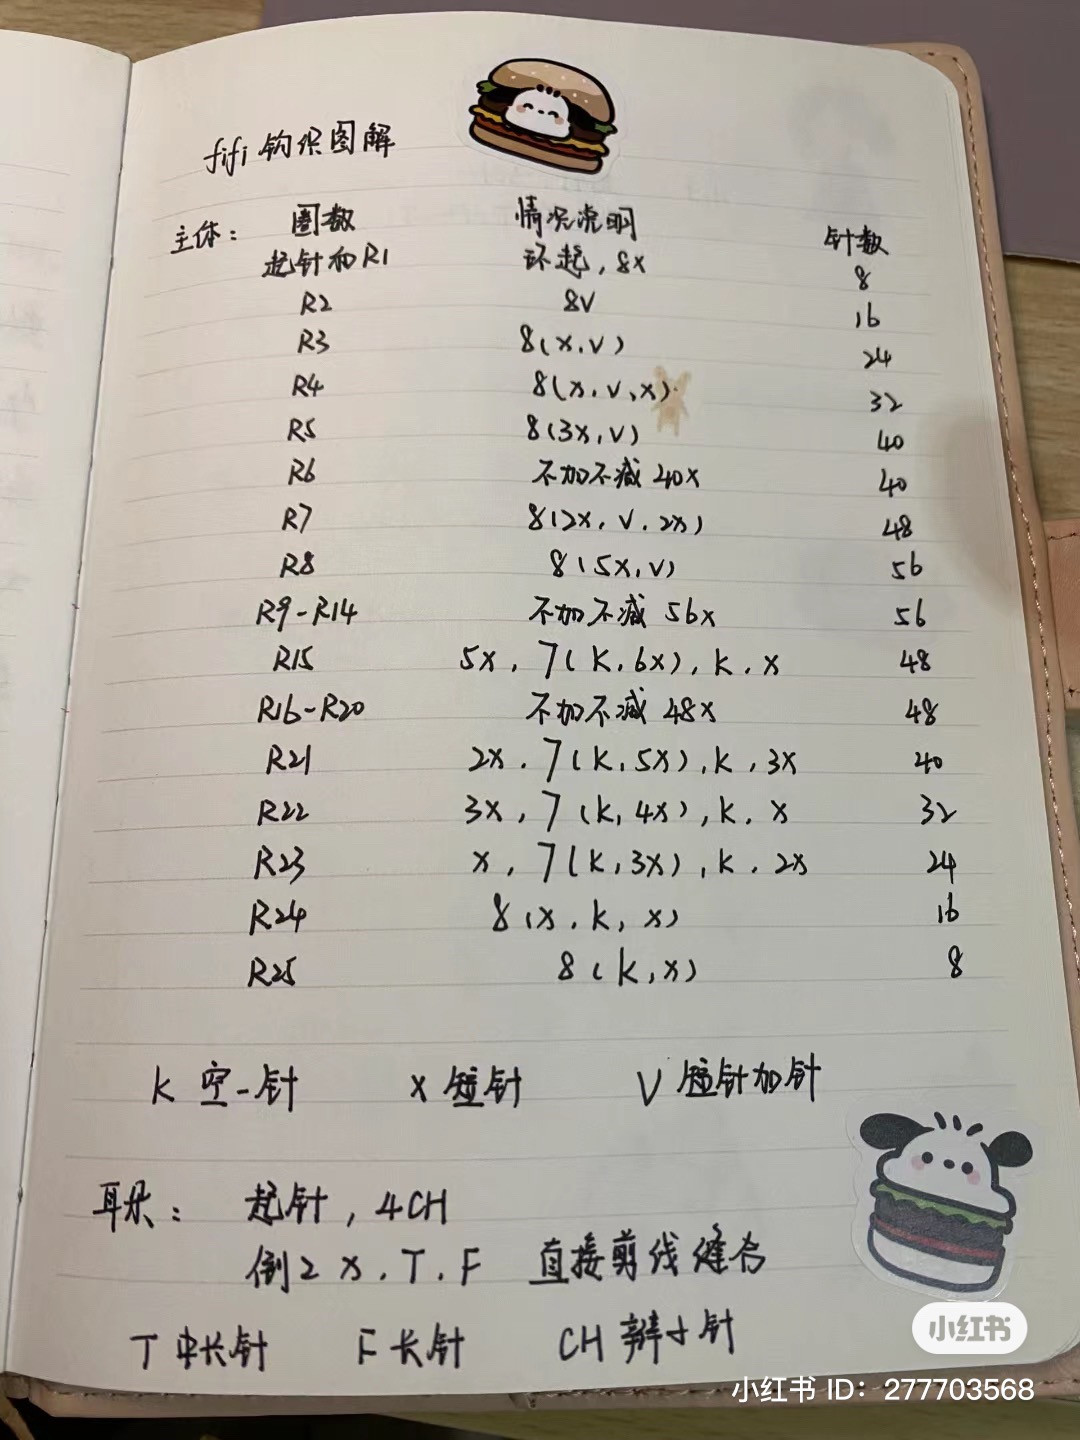 fifi 钩织图解
主体: 圈数 情况说明 针数
起针和R1 环起, 8X 8
R2 8V 16
R3 8(X.V) 24
R4 8(X.V,X) 32
R5 8(3X,V) 40
R6 不加不减 40X 40
R7 8(2X.V.2X) 48
R8 8(5X,V) 56
R9-R14 不加不减 56X 56
R15 5X, 7(K,6X), K.X 48
R16-R20 不加不减 48X 48
R21 2X. 7(K,5X), K, 3X 40
R22 3X, 7(K, 4X), K. X 32
R23 X, 7(K,3X), K. 2X 24
R24 8(X.K, X) 16
R25 8(K,X) 8
K 空一针 X 短针 V 短针加针
耳朵: 起针, 4CH
倒2 X.T.F 直接剪线缝合
T 中长针 F 长针 CH 辫子针
小红书
小红书 ID: 277703568